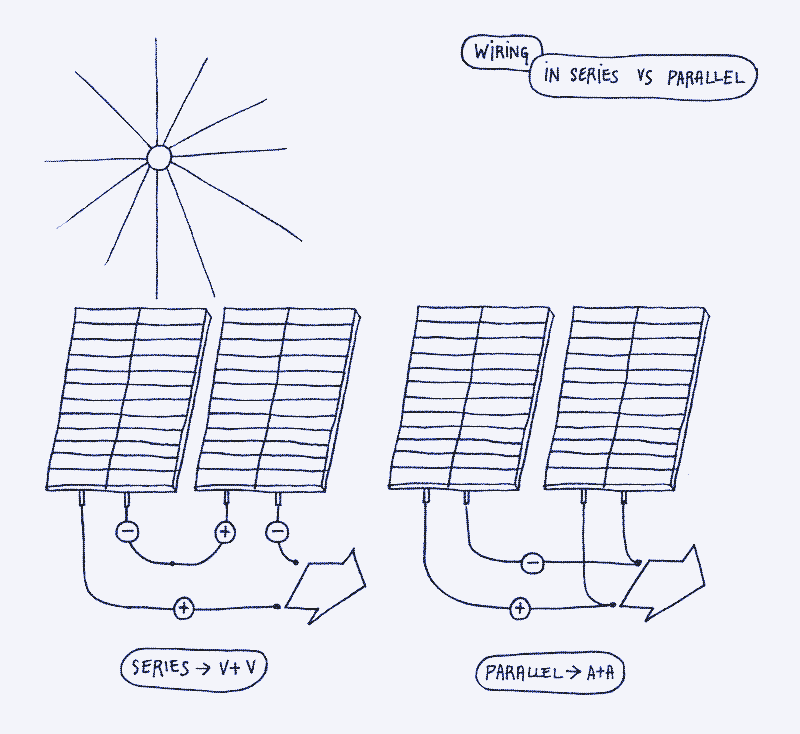 WIRING
IN SERIES VS PARALLEL
− + −
+
−
+
SERIES → V+V
PARALLEL → A+A